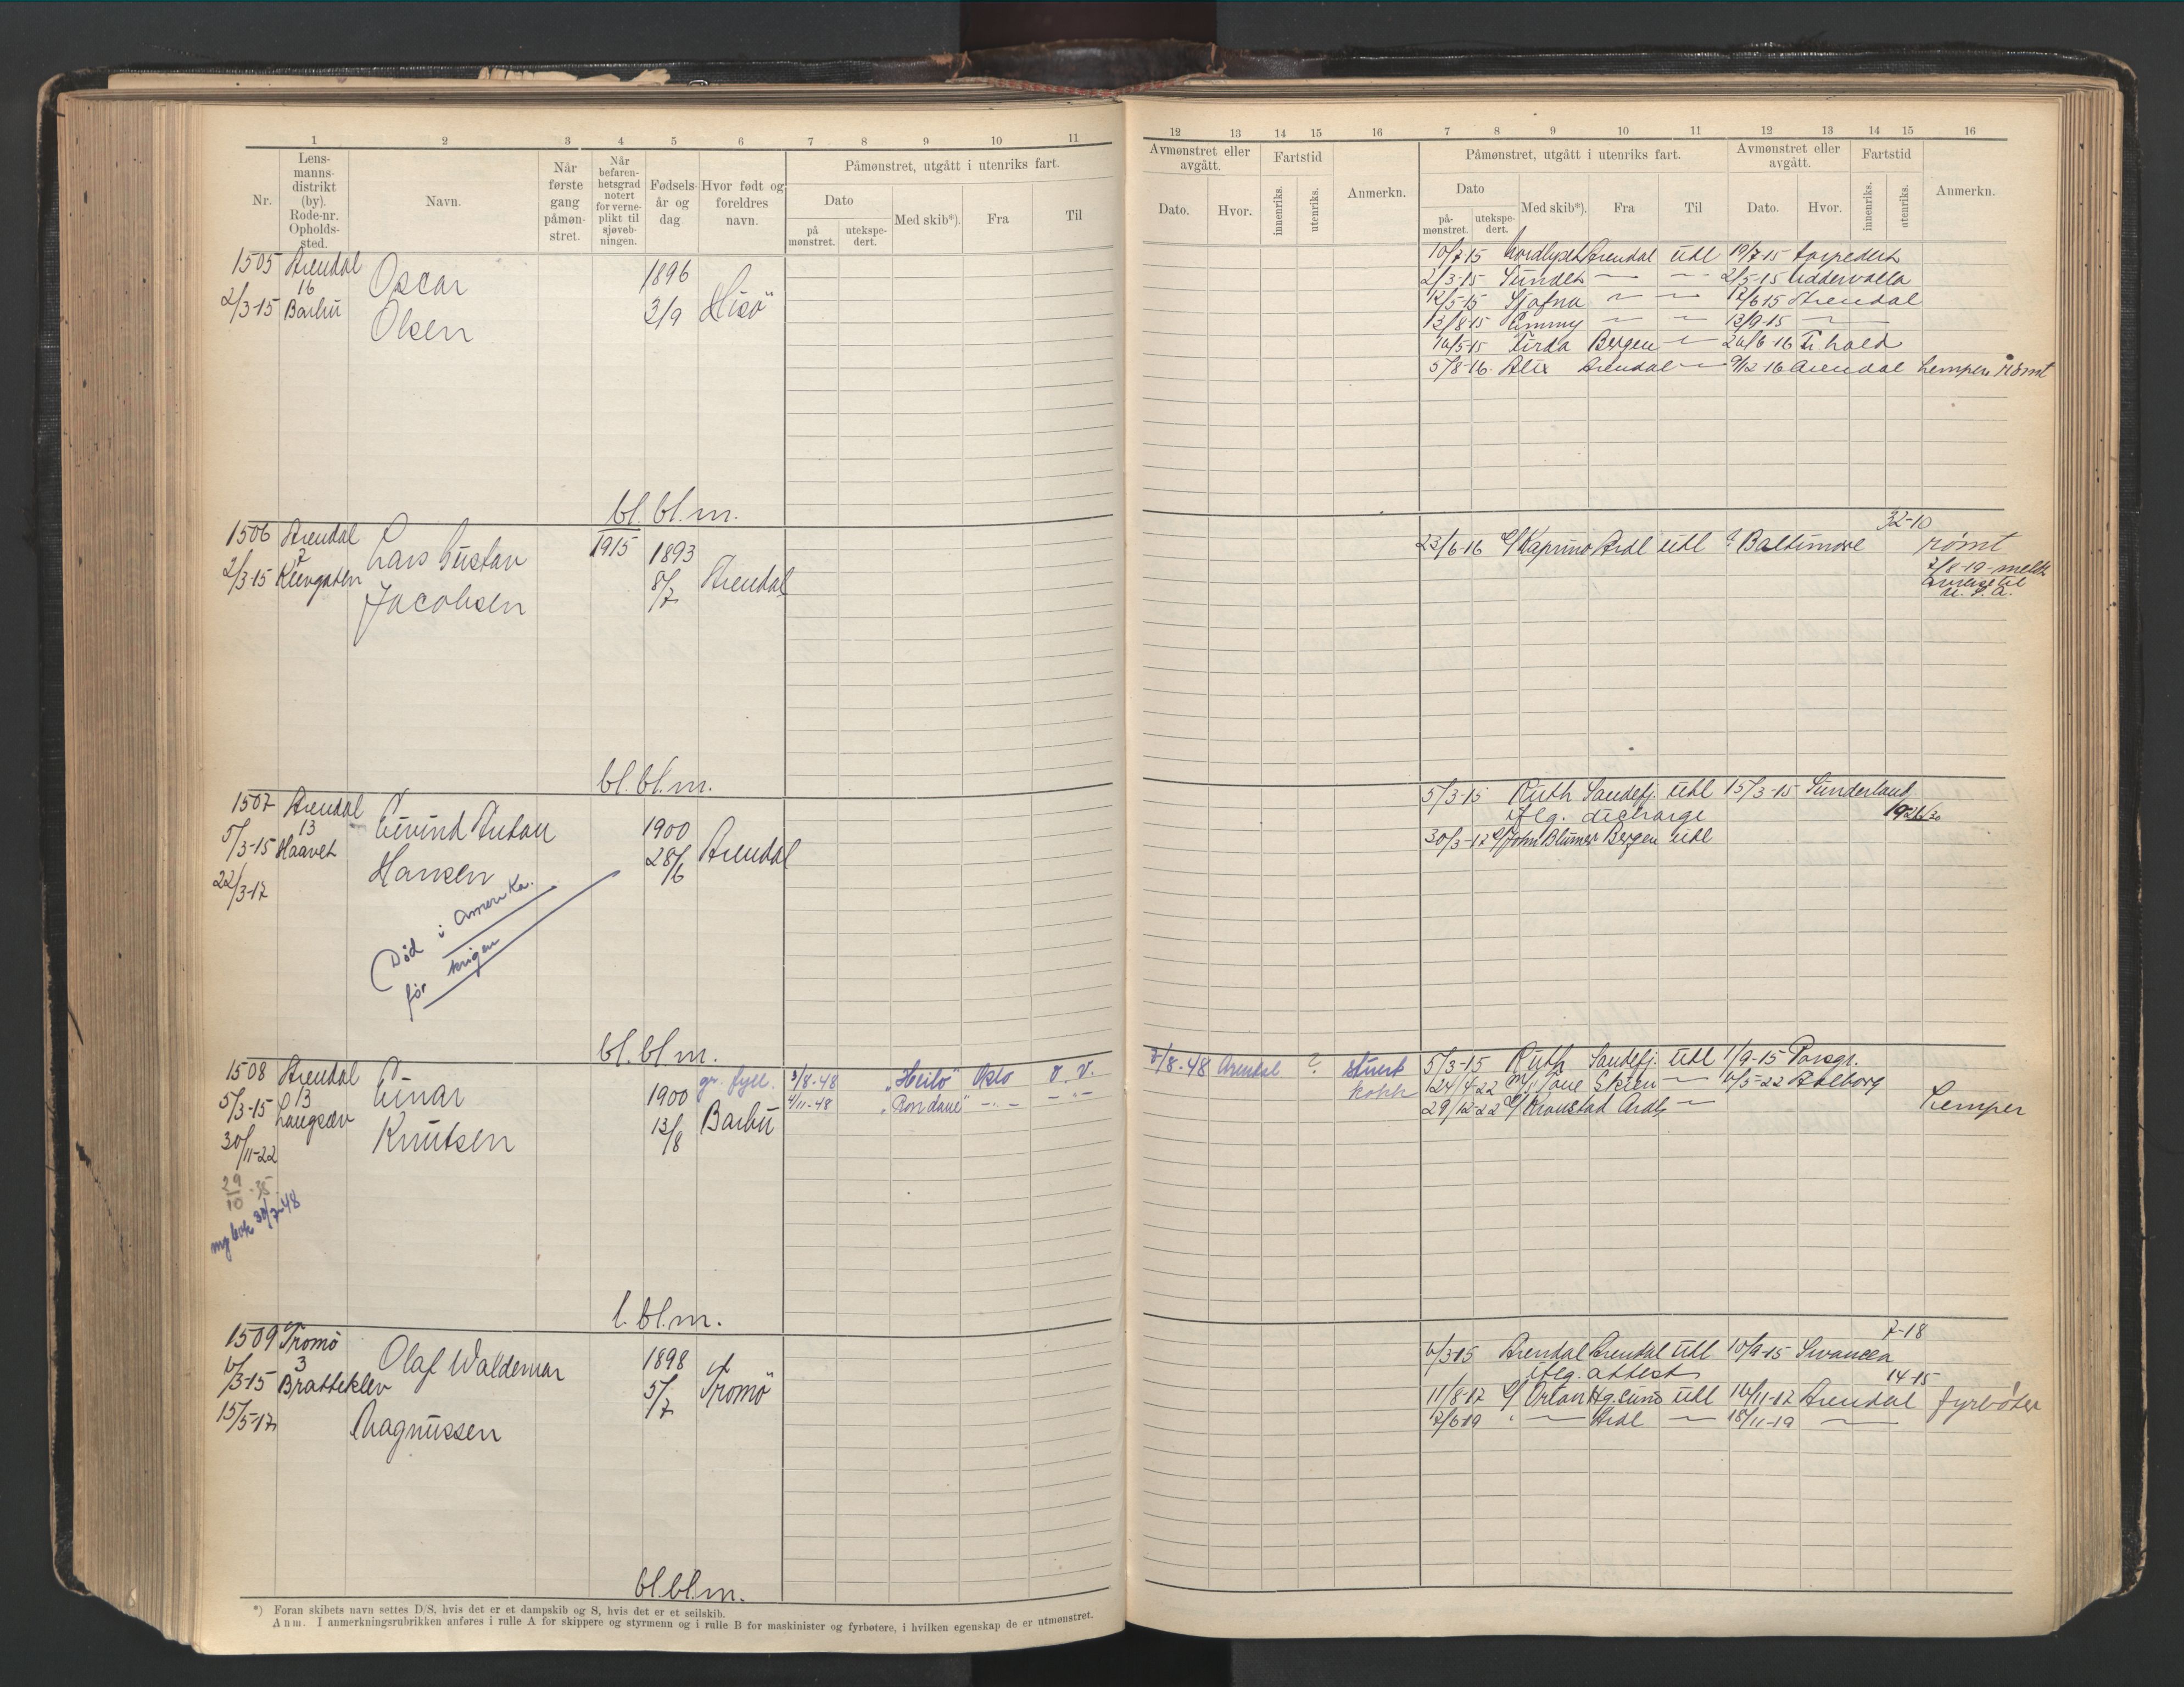 1 2 3 4 5 6 7 8 9 10 11
Nr.
Lens-
manns-
distrikt
(by).
Rode-nr.
Opholds-
sted.
Navn.
Når
første
gang
påmøn-
stret.
Når
befaren-
hetsgrad
notert
for verne-
plikt til
sjøveb-
ningen.
Fødsels-
år og
dag
Hvor født og
foreldres
navn.
Påmønstret, utgått i utenriks fart.
Dato
på
mønstret.
utekspe-
dert.
Med skib*).
Fra
Til
1505 Arendal
16
2/3-15 Barbu
Oscar
Olsen
1896
3/9
Hisö
bl. bl. m.
1506 Arendal
7
2/3-15
Lars Gustav
Jacobsen
1915
1893
8/7
Arendal
bl. bl. m.
1507 Arendal
13
5/3-15 Haavet
22/3-17
Eivind Anton
Hansen
1900
28/6
Arendal
Död i Amerika.
før krigen
bl. bl m.
1508 Arendal
13
5/3-15 Langsæv
30/11-22
29/10-35
my bok 30/7-48
Einar
Knutsen
1900
13/8
Barbu
3/8-48 "Heilo" Oslo V. V.
4/11-48 "Rondane" -"- -"-
l. bl. m.
1509 Tromö
3
6/3-15 Bratteklev
15/5-17
Olaf Waldemar
Magnussen
1898
5/7
Tromö
bl. bl. m.
*) Foran skibets navn settes D/S, hvis det er et dampskib og S, hvis det er et seilskib.
Anm. I anmerkningsrubrikken anføres i rulle A for skippere og styrmenn og i rulle B for maskinister og fyrbøtere, i hvilken egenskap de er utmønstret.
12 13 14 15 16 7 8 9 10 11 12 13 14 15 16
Avmønstret eller
avgått.
Dato.
Hvor.
Fartstid
innenriks.
utenriks.
Anmerkn.
Påmønstret, utgått i utenriks fart.
Dato
på-
mønstret.
utekspe-
dert.
Med skib*).
Fra
Til
Avmønstret eller
avgått.
Dato.
Hvor.
Fartstid
innenriks.
utenriks.
Anmerkn.
10/7-15 Nordlyset Arendal Utl 19/7-15 torpedert
2/3-15 — — 2/5-15 Uddervalla
12/5-15 Sjofna — — 12/6 15 Arendal
13/8-15 Emmy — — 13/9-15 —
Firda Bergen —
5/8-16 Alix Arendal — 9/12-16 Arendal Lemper rømt
32-10
23/6-16 Kaprino Ardl utl ? Baltimore rømt
7/8-19
U. S. A.
5/3-15 Ruth Sandefj. Utl 15/3-15 Sunderland
iflg. discharge
30/3-17 John Blumer Bergen Utl
3/8-48 Arendal ? stuert
kokk
5/3-15 Ruth Sandefj. Utl 1/9-15 Porsgr.
24/4-22 Skien — Aalborg
29/12-22 Kronstad Ardl — Lemper
7-18
6/3-15 Arendal Arendal Utl 10/9-15 Swansea
iflg. attest
14-15
11/8-17 Utl 16/11-17 Arendal fyrböter
7/6-19 " — Ardl — 18/11-19 —